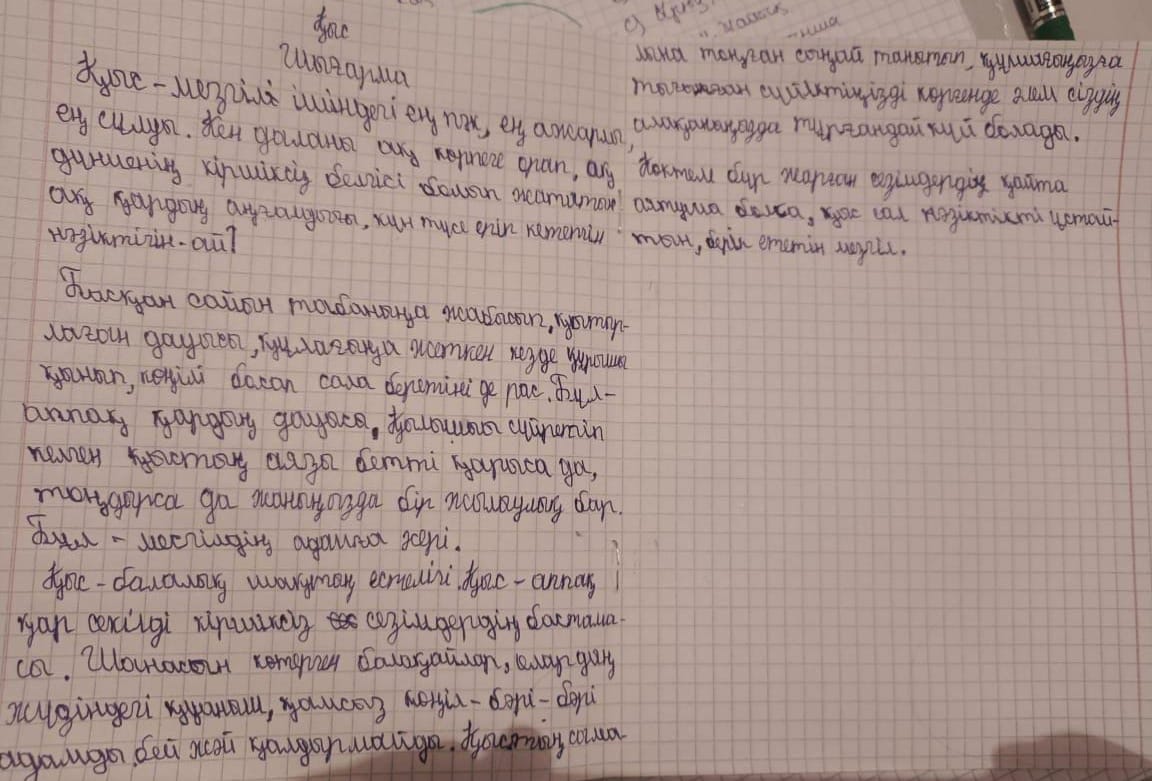 Қыс
Шығарма
Қыс - мезгіл ішіндегі ең пәк, ең ажарлы,
ең сұлуы. Кең даланы ақ көрпеге орап, ақ
дүниенің кіршіксіз белгісі болып жататын
ақ қардың аңғалдығы, күн түсе еріп кететін
нәзіктігін-ай!
Басқан сайын табаныңа жабысып, қытыр-
лаған дауысы, құлағыңа жеткен кезде құрышы
қынып, көңілі босап сала беретіні де рас. Бұл-
аппақ қардың даусы. Қылышын сүйретіп
келген қыстың аязы бетті қарыса да,
тоңдырса да жаныңызда бір жылылық бар.
Бұл - мезгілдің адамға жері.
Қыс - балалық шақтың естелігі. Қыс - аппақ
қар секілді кіршіксіз сезімдердің бастама-
сы. Шанасын көтерген балақайлар, олардың
жүдіңдегі қуаныш, қамсыз көңіл - бәрі - бәрі
адамды бей жәй қалдырмайды. Қыстың
тоңған сыңай танытып, құшағыңызға
тығылған сүйіктіңізді көргенде әлем сіздің
алақаныңызда тұрғандай күй болады.
Көктем бүр жарған сезімдердің қайта
оятушы болса, қыс сол нәзіктікті ұстай-
тын, берік ететін мезгіл.